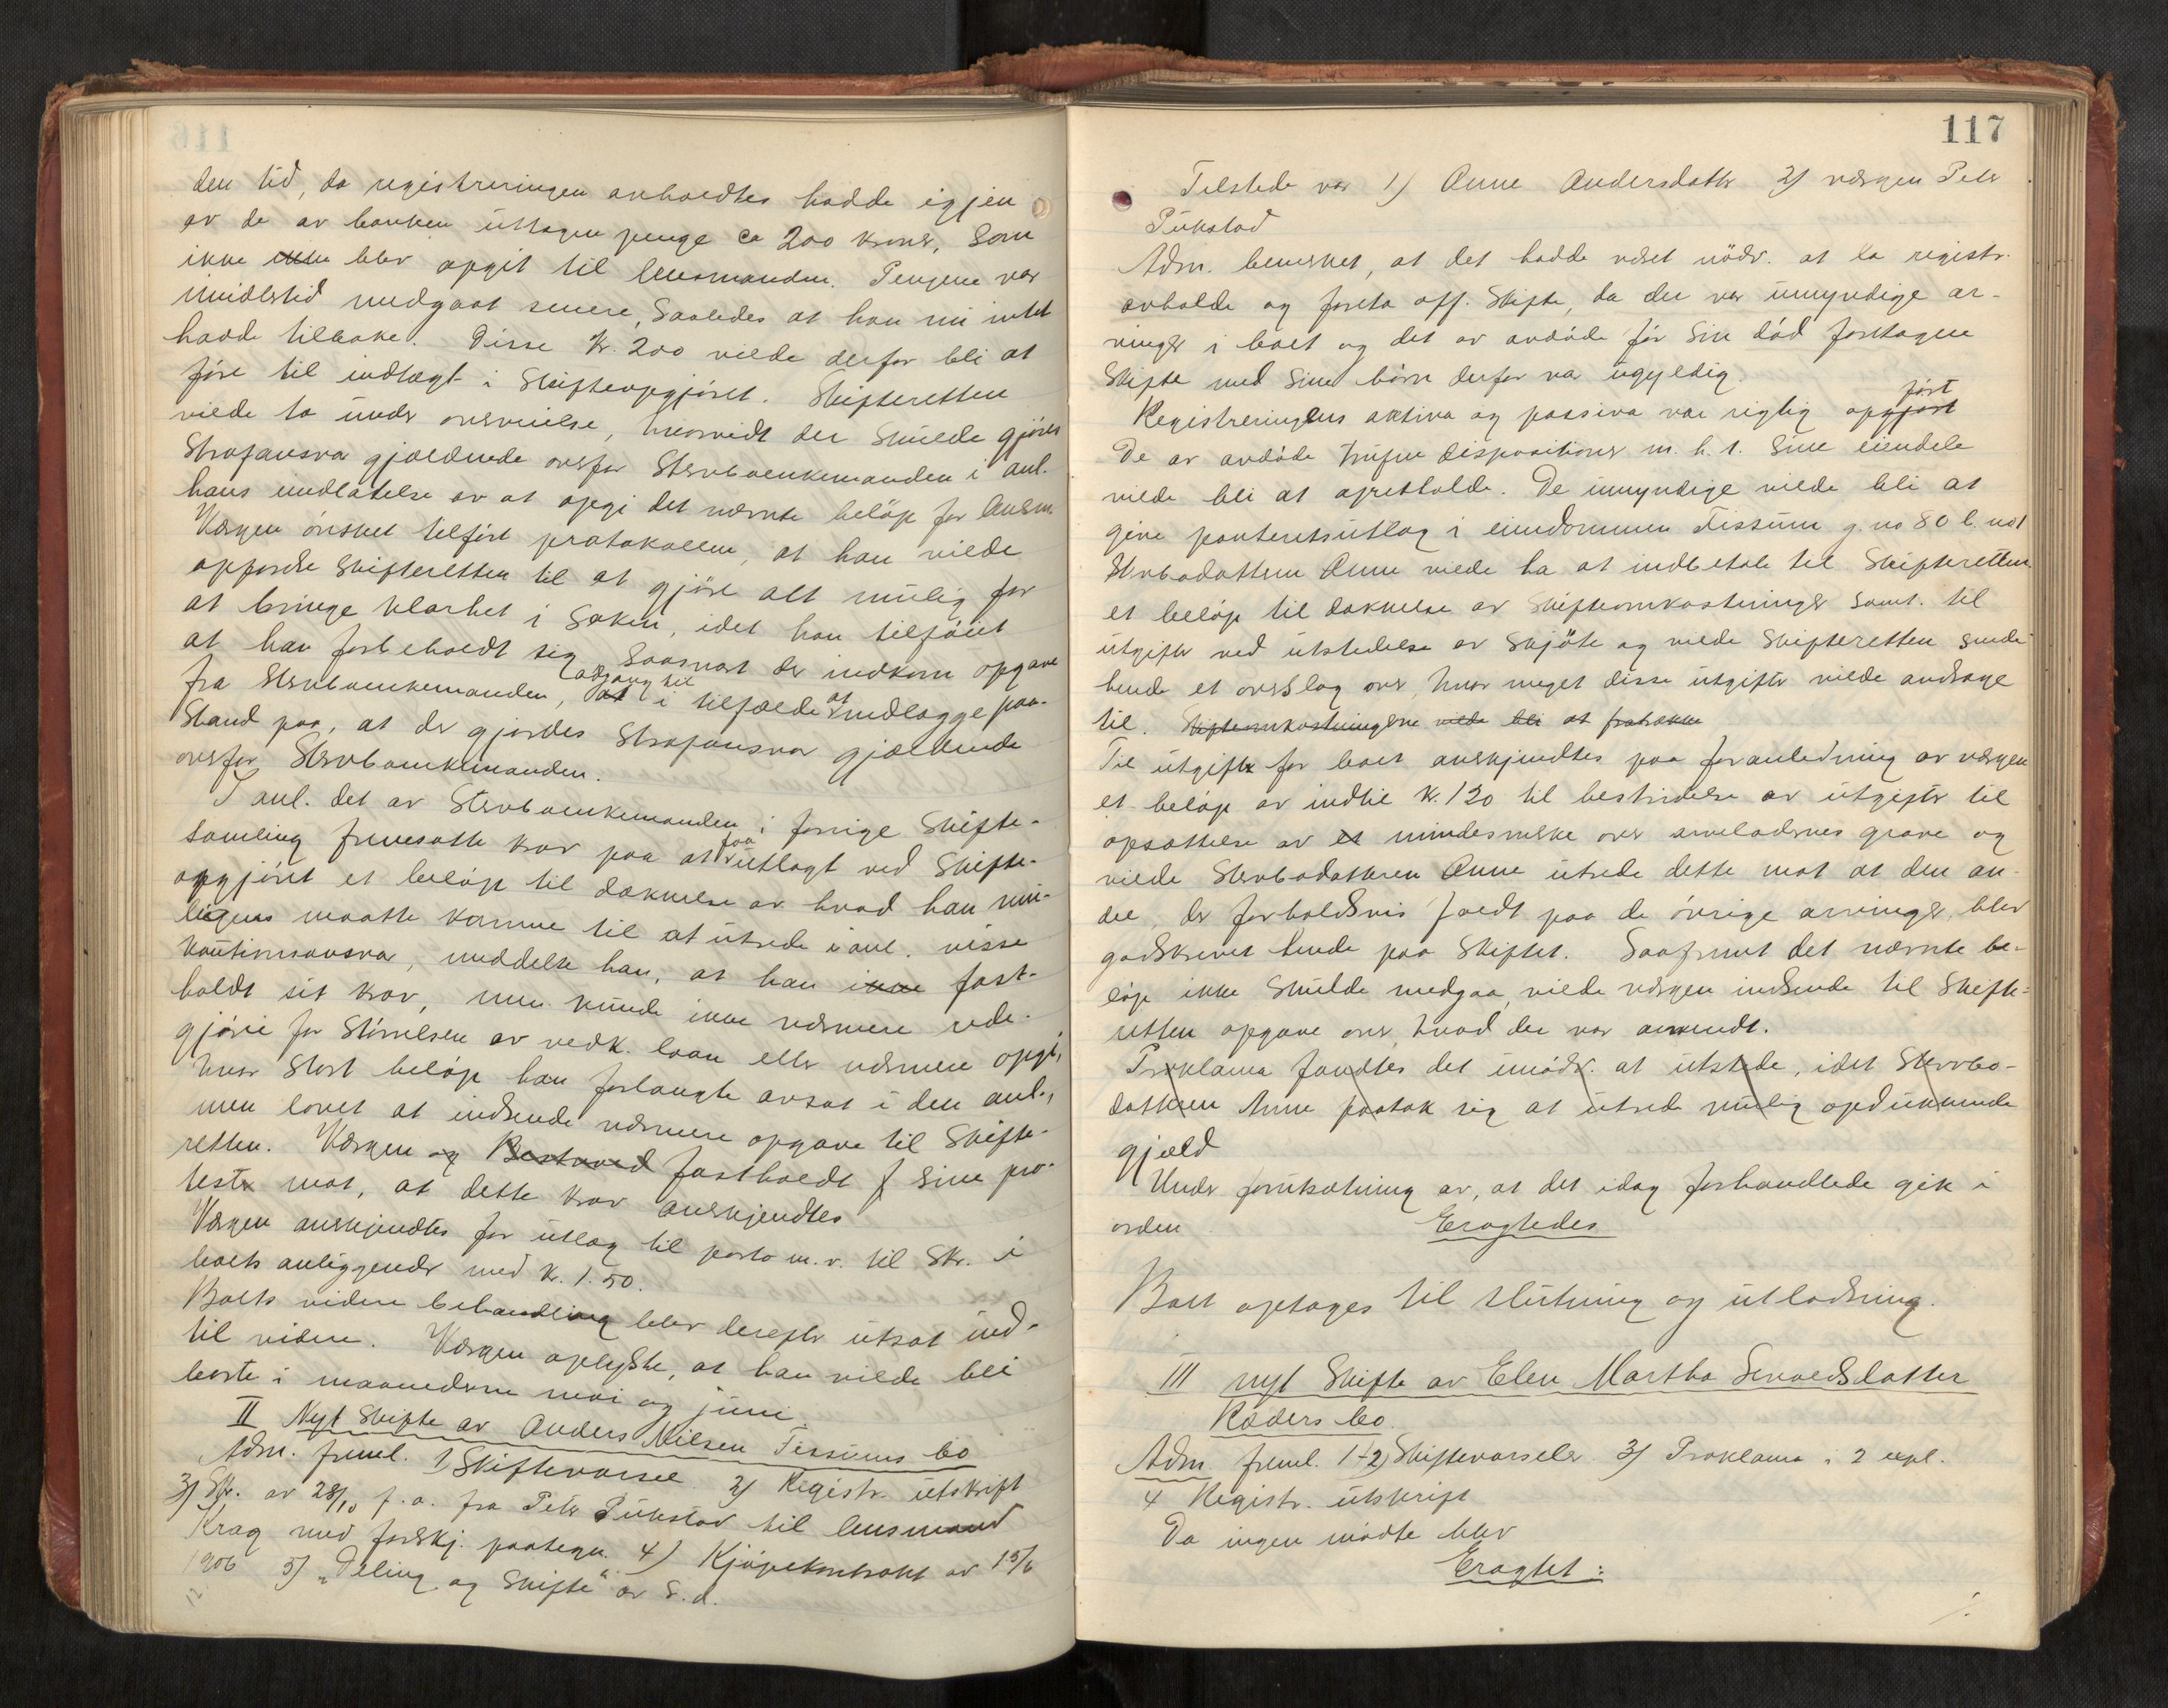 den tid, da registreringen avholdtes hadde igjen
av de av banken uttagne penge ca 200 kroner, som
ikke ikke blev opgit til lensmanden. Pengene var
imidlertid medgaat senere, saaledes at han nu intet
hadde tilbake. Disse kr. 200 vilde derfor bli at
føre til indtægt i skifteopgjøret. Skifteretten
vilde ta under overveielse, hvorvidt der skulde gjøres
strafansvar gjældende overfor sterboenkemanden i anl.
hans undlatelse av at opgi det nævnte beløp for lensm.
Vergen ønsket tilført protokollen, at han vilde
opfordre skifteretten til at gjøre alt mulig for
at bringe klarhet i saken, idet han tilføiet
at han forbeholdt sig, saasnart der indkom opgave
fra sterboenkemanden, at adgang til i tilfælde at nedlægge paa-
stand paa, at der gjordes strafansvar gjældende
overfor sterboenkemanden.
I anl. det av sterboenkemanden i forrige skifte-
samling fremsatte krav paa at faa utlagt ved skifte-
opgjøret et beløp til dækkelse av hvad han mu-
ligens maatte komme til at utrede i anl. visse
kautionsansvar, meddelte han, at han ikke fast-
holdt sit krav, men kunde ikke nærmere rede-
gjøre for størrelsen av vedk. laan eller nærmere opgi,
hvor stort beløp han forlangte avsat i den anl.,
men lovet at indsende nærmere opgave til skifte-
retten. Vergen og fastholdt sine pro-
tester mot, at dette krav anerkjendtes
Vergen anerkjendtes for utlæg til porto m.v. til Skr. i
boets anliggender med kr. 1.50.
Boets videre behandling blev derefter utsat ind-
til videre. Vergen oplyste, at han vilde bli
borte i maanederne mai og juni.
II Nyt skifte av Anders Nilsen Tissums bo
Adm. freml. 1) Skiftevarsel 2) Registr. utskrift
3) Skr. av 28/10 f.a. fra Peter Pukstad til lensmand
Krag med forskj. paategn. 4) Kjøpekontrakt av 15/6
1906 5) "Deling og Skifte" av s.d.
117
Tilstede var 1) Anne Andersdatter 2) vergen Peter
Pukstad
Adm. bemerket, at det hadde været nødv. at la registr.
avholde og foreta off. skifte, da der var umyndige ar-
vinger i boet og det av avdøde før sin død foretagne
skifte med sine børn derfor var ugyldig.
Registreringens aktiva og passiva var rigtig opgjort ført
De av avdøde trufne dispositioner m. h. t. sine eiendele
vilde bli at opretholde. De umyndige vilde bli at
give panteretsutlæg i eiendommen Tissum g. no 80 b. no 1
Sterbodatteren Anne vilde ha at indbetale til Skifteretten
et beløp til dækkelse av skifteomkostninger samt til
utgifter ved utstedelse av skjøte og vilde skifteretten sende
hende et overslag over, hvor meget disse utgifter vilde andrage
til. Skifteomkostningerne vilde bli at fratrække
Til utgifter for boet anerkjendtes paa foranledning av vergen
et beløp av indtil kr. 120 til bestridelse av utgifter til
opsættelse av et mindesmerke over arveladernes grave og
vilde Sterbodatteren Anne utrede dette mot at den an-
del, der forholdsvis faldt paa de øvrige arvinger, blev
godskrevet hende paa skiftet. Saafremt det nævnte be-
løp ikke skulde medgaa, vilde vergen indsende til Skifte-
retten opgave over, hvad der var anvendt.
Proklama fandtes det unødv. at utstede, idet Sterbo-
datteren Anne paatok sig at utrede mulig opdukkende
gjæld
Under forutsætning av, at det idag forhandlede gik i
orden
Eragtedes
Boet optages til slutning og utlodning.
III nyt Skifte av Elen Martha Sevaldsdatter
Ræders bo.
Adm. freml. 1-2) Skiftevarseler 3) Proklama i 2 expl.
4 Registr. utskrift
Da ingen mødte blev
Eragtet: